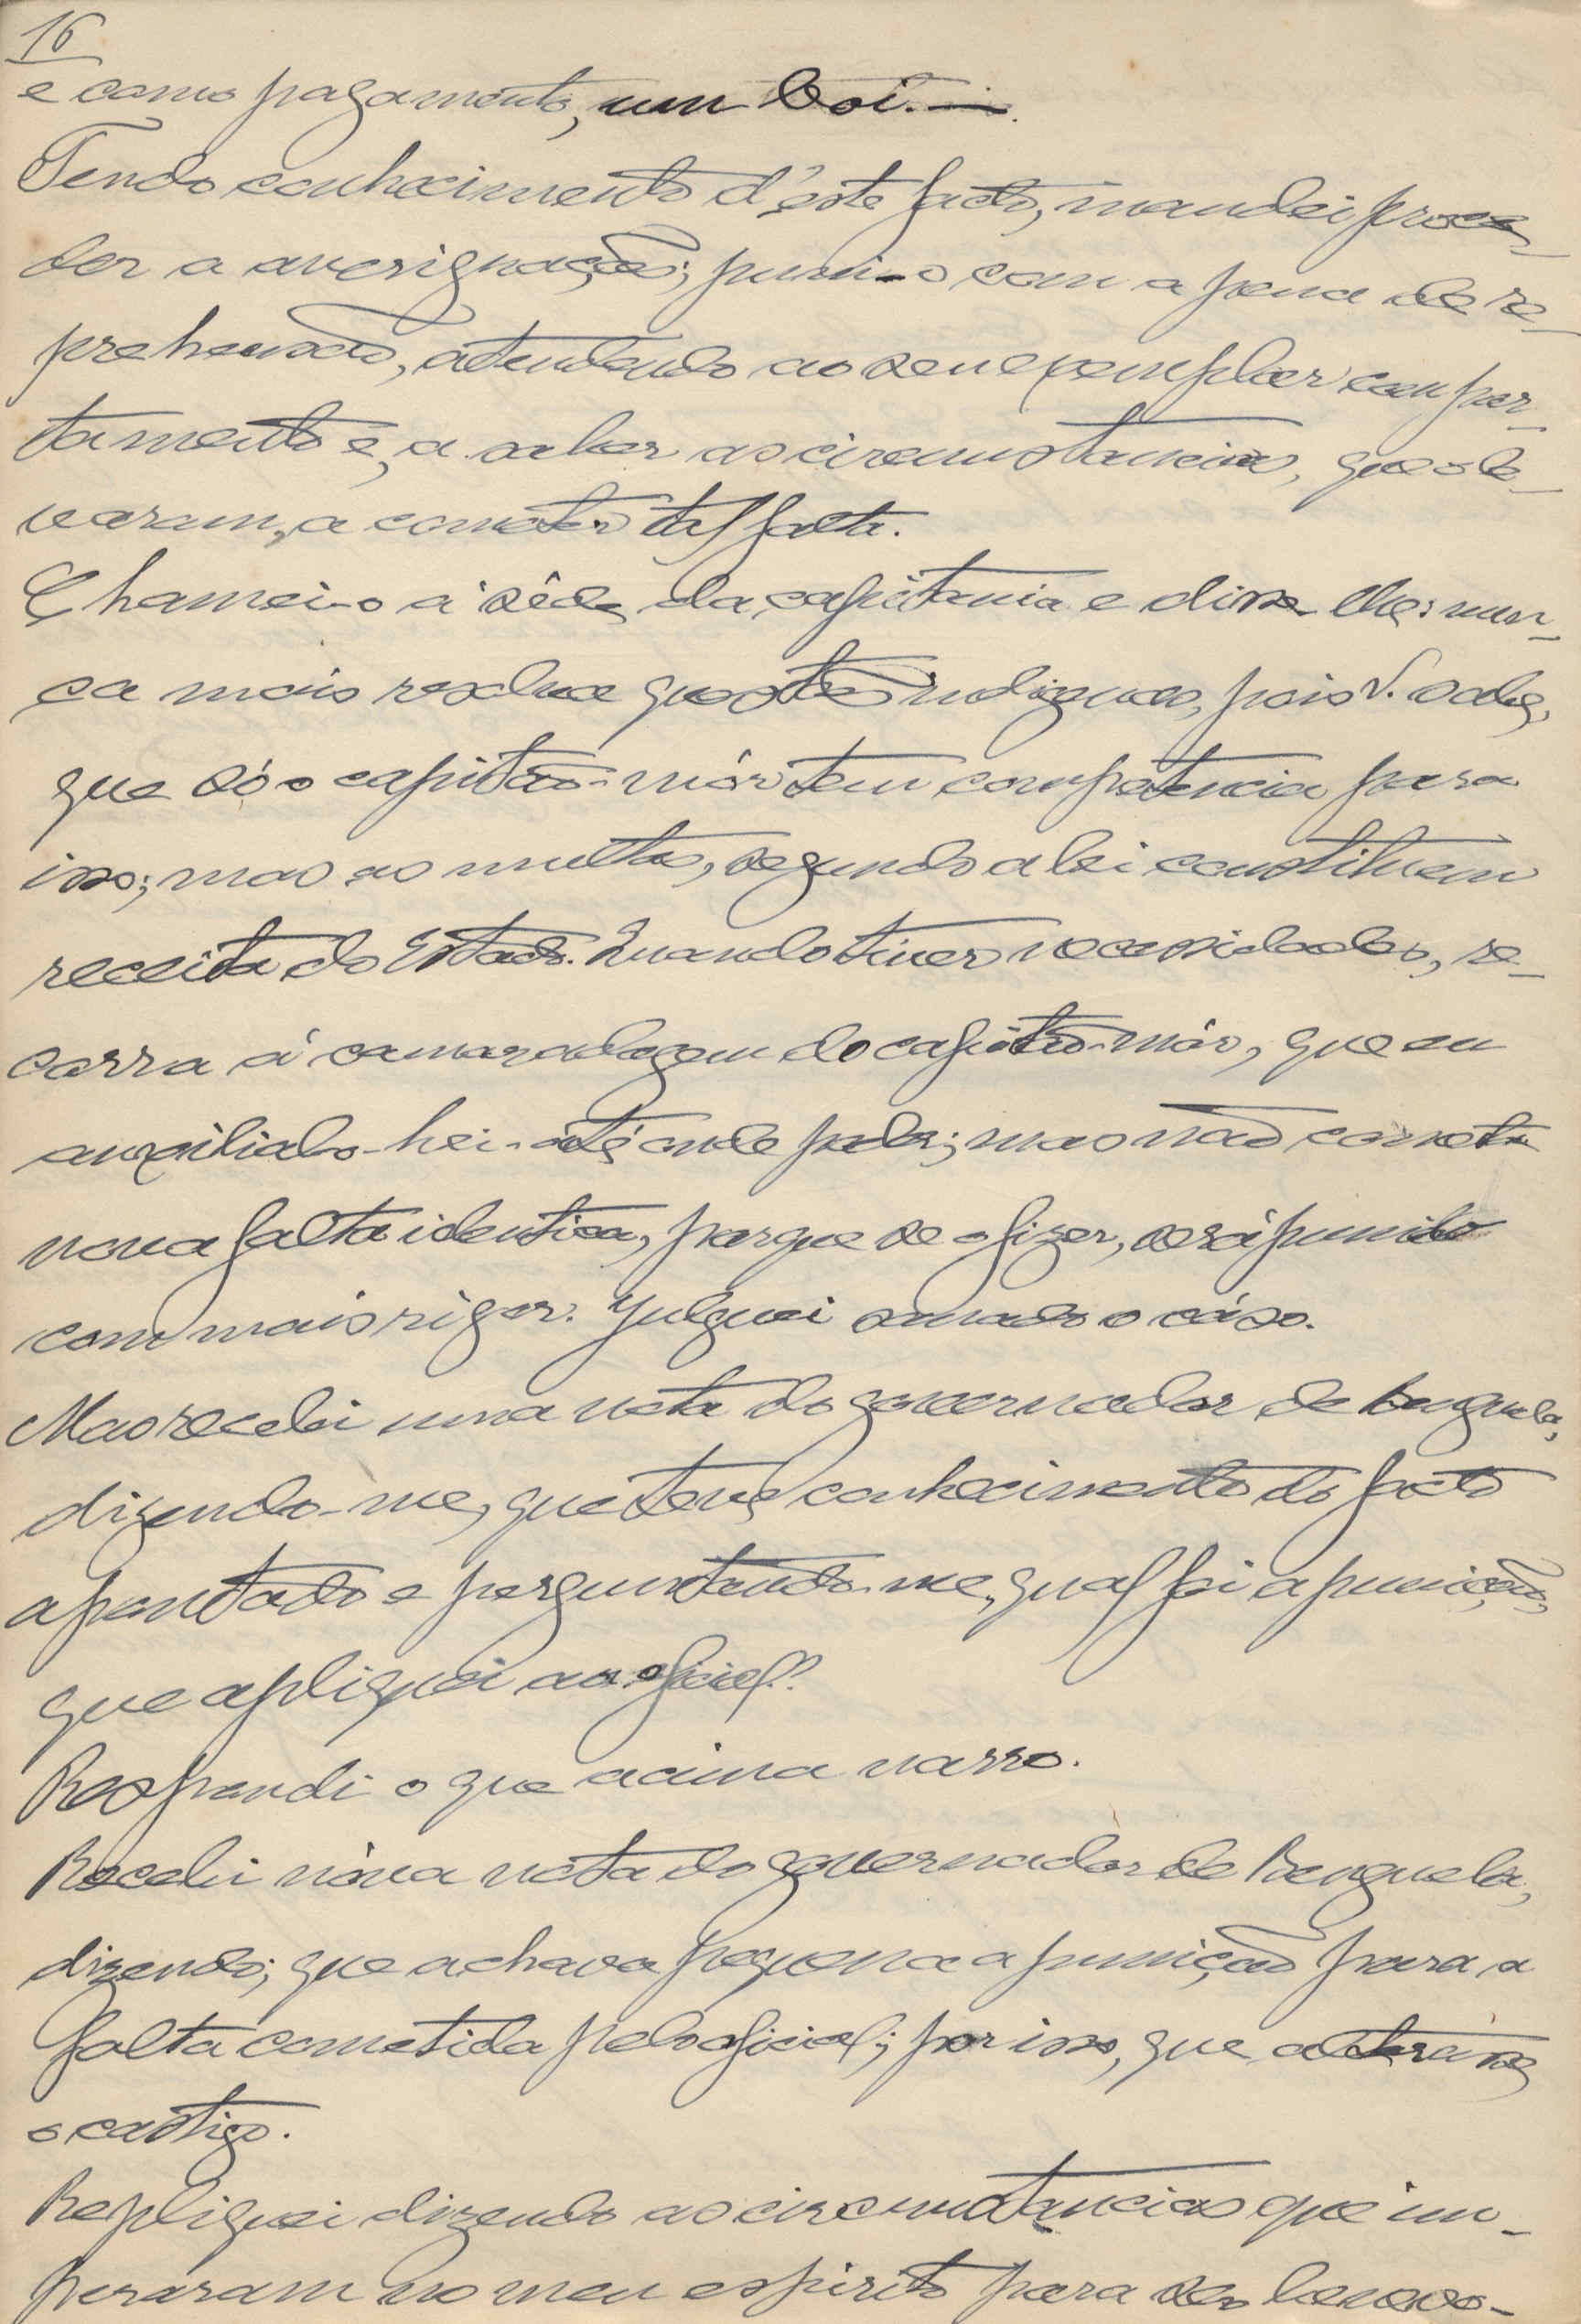 16
e como pagamento, um boi.—
Tendo conhecimento d'éste facto, mandei proce-
der a averiguação; puni-o com a pena de re-
prehensão, atendendo ao seu exemplar compor-
tamento e, a saber as circumstancias, que o le-
varam, a cometer tal falta.
Chamei-o á séde da capitania e disse-lhe: nun-
ca mais resolva questões indigenas, pois V. sabe,
que só o capitão-mór tem competencia para
isso; mas as multas, segundo a lei constituem
receita do Estado. Quando tiver necessidades, re-
corra á camaradagem do capitão-mór, que eu
auxilialo-hei até onde poder; mas não cometa
nova falta identica, porque se o fizer, será punido
com mais rigor. Julguei sanado o cáso.
Mas recebi uma nota do governador de Benguela,
dizendo-me, que teve conhecimento do facto
apontado e perguntando-me, qual foi a punição,
que apliquei ao oficial?
Respondi o que acima narro.
Recebi nóva nota do governador de Benguela,
dizendo; que achava pequena a punição para a
falta cometida pelo oficial; por isso, que alterásse
o castigo.
Repliquei dizendo as circumstancias que im-
peráram no meu espirito para ser benevo-